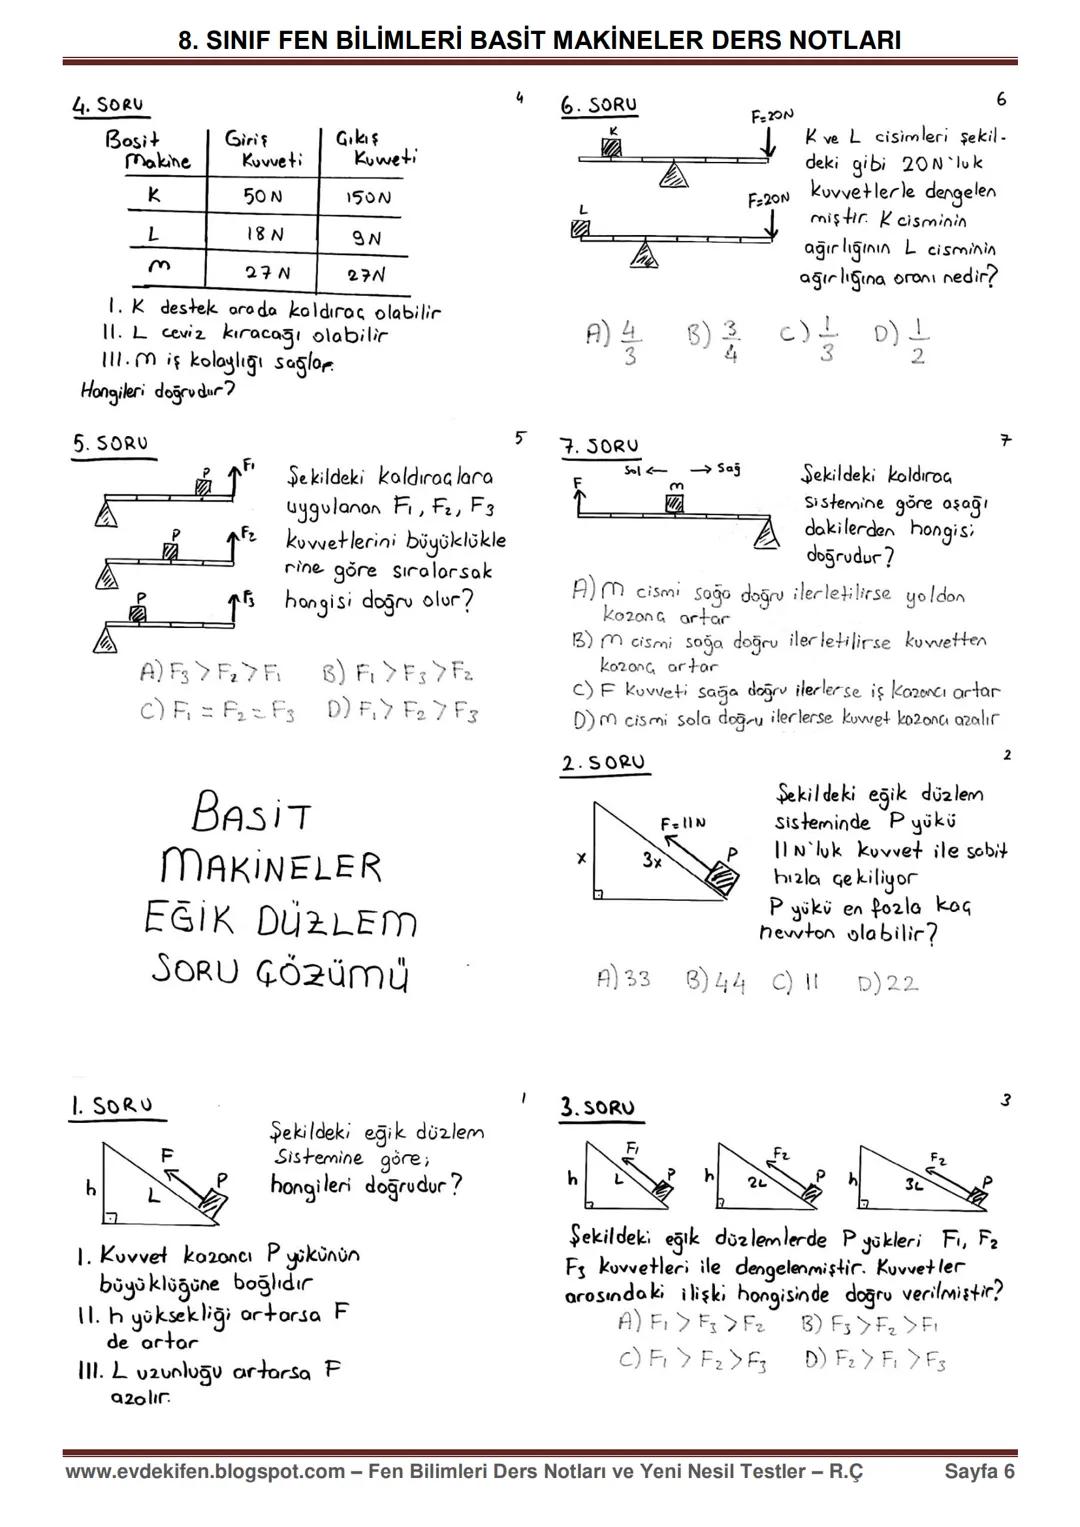 8. SINIF FEN BİLİMLERİ BASİT MAKİNELER DERS NOTLARI
4. SORU
4
Basit Makine
Giriş Kuvveti
Çıkış Kuvveti
K 50 N 150 N
L 18 N 9 N
m 27 N 27 N
I. K destek arada kaldıraç olabilir
II. L ceviz kıracağı olabilir
III. m iş kolaylığı sağlar.
Hangileri doğrudur?
5. SORU
5
P F1
P F2
P F3
Şekildeki kaldıraçlara
uygulanan F1, F2, F3
kuvvetlerini büyüklükle
rine göre sıralarsak
hangisi doğru olur?
A) F3 > F2 > F1 B) F1 > F3 > F2
C) F1 = F2 = F3 D) F1 > F2 > F3
BASİT
MAKİNELER
EĞİK DÜZLEM
SORU ÇÖZÜMÜ
1. SORU
1
h L F P
Şekildeki eğik düzlem
Sistemine göre;
hangileri doğrudur?
I. Kuvvet kazancı P yükünün
büyüklüğüne bağlıdır
II. h yüksekliği artarsa F
de artar
III. L uzunluğu artarsa F
azalır.
6. SORU
6
K F=20N
L F=20N
K ve L cisimleri şekil-
deki gibi 20N'luk
kuvvetlerle dengelen
miştir. K cisminin
ağırlığının L cisminin
ağırlığına oranı nedir?
A) 4/3 B) 3/4 C) 1/3 D) 1/2
7. SORU
7
Sol ← → Sağ
F m
Şekildeki kaldıraç
Sistemine göre aşağı
dakilerden hangisi
doğrudur?
A) m cismi sağa doğru ilerletilirse yoldan
kazanç artar
B) m cismi sağa doğru ilerletilirse kuvvetten
kazanç artar
C) F kuvveti sağa doğru ilerlerse iş kazancı artar
D) m cismi sola doğru ilerlerse kuvvet kazancı azalır
2. SORU
2
x 3x F=11N P
Şekildeki eğik düzlem
sisteminde P yükü
11N'luk kuvvet ile sabit
hızla çekiliyor
P yükü en fazla kaç
newton olabilir?
A) 33 B) 44 C) 11 D) 22
3. SORU
3
h L F1 P h 2L F2 P h 3L F2 P
Şekildeki eğik düzlemlerde P yükleri F1, F2
F3 kuvvetleri ile dengelenmiştir. Kuvvetler
arasındaki ilişki hangisinde doğru verilmiştir?
A) F1 > F3 > F2 B) F3 > F2 > F1
C) F1 > F2 > F3 D) F2 > F1 > F3
www.evdekifen.blogspot.com – Fen Bilimleri Ders Notları ve Yeni Nesil Testler – R.Ç
Sayfa 6